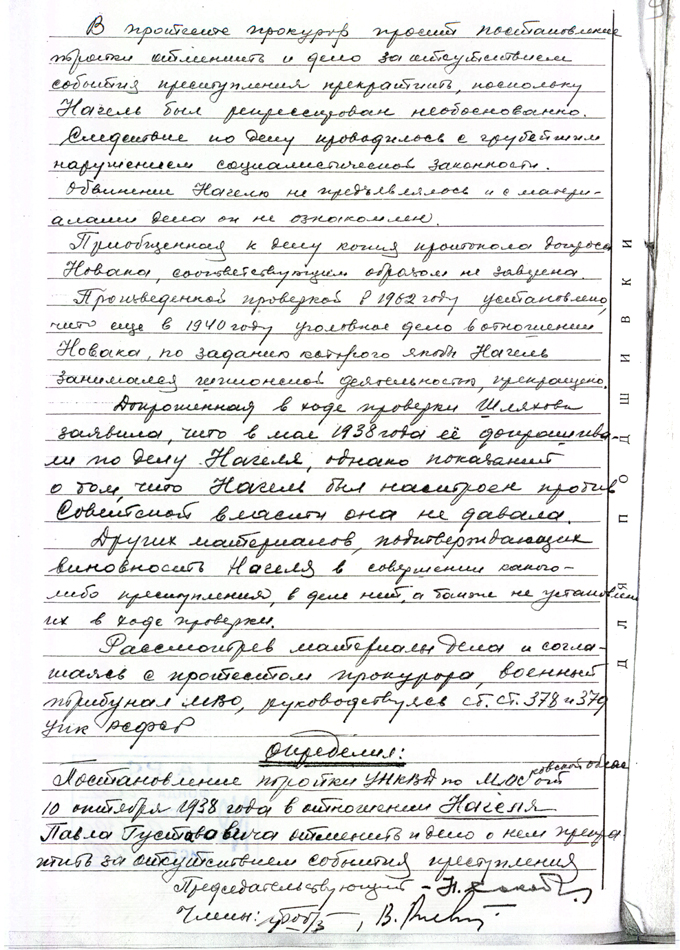 В протесте прокурор просит постановление
тройки отменить и дело за отсутствием
события преступления прекратить, поскольку
Нагель был репрессирован необоснованно.
Следствие по делу проводилось с грубейшим
нарушением социалистической законности.
Обвинение Нагелю не предъявлялось и с матери-
алами дела он не ознакомлен.
Приобщенная к делу копия протокола допроса
Новака, соответствующим образом не заверена.
Произведенной проверкой в 1962 году установлено,
что еще в 1940 году уголовное дело в отношении
Новака, по заданию которого якобы Нагель
занимался шпионской деятельностью, прекращено.
Допрошенная в ходе проверки Шляхова
заявила, что в мае 1938 года её допрашива-
ли по делу Нагеля, однако показаний
о том, что Нагель был настроен против
Советской власти она не давала.
Других материалов, подтверждающих
виновность Нагеля в совершении какого-
либо преступления, в деле нет, а также не установлено
их в ходе проверки.
Рассмотрев материалы дела и согла-
шаясь с протестом прокурора, военный
трибунал МВО, руководствуясь ст.ст. 378 и 379
УПК РСФСР
Определил:
Постановление тройки УНКВД по Московской области от
10 октября 1938 года в отношении Нагеля
Павла Густававича отменить и дело о нем прекра
тить за отсутствием события преступления
Председательствующий -
Члены:
ДЛЯ ПОДШИВКИ